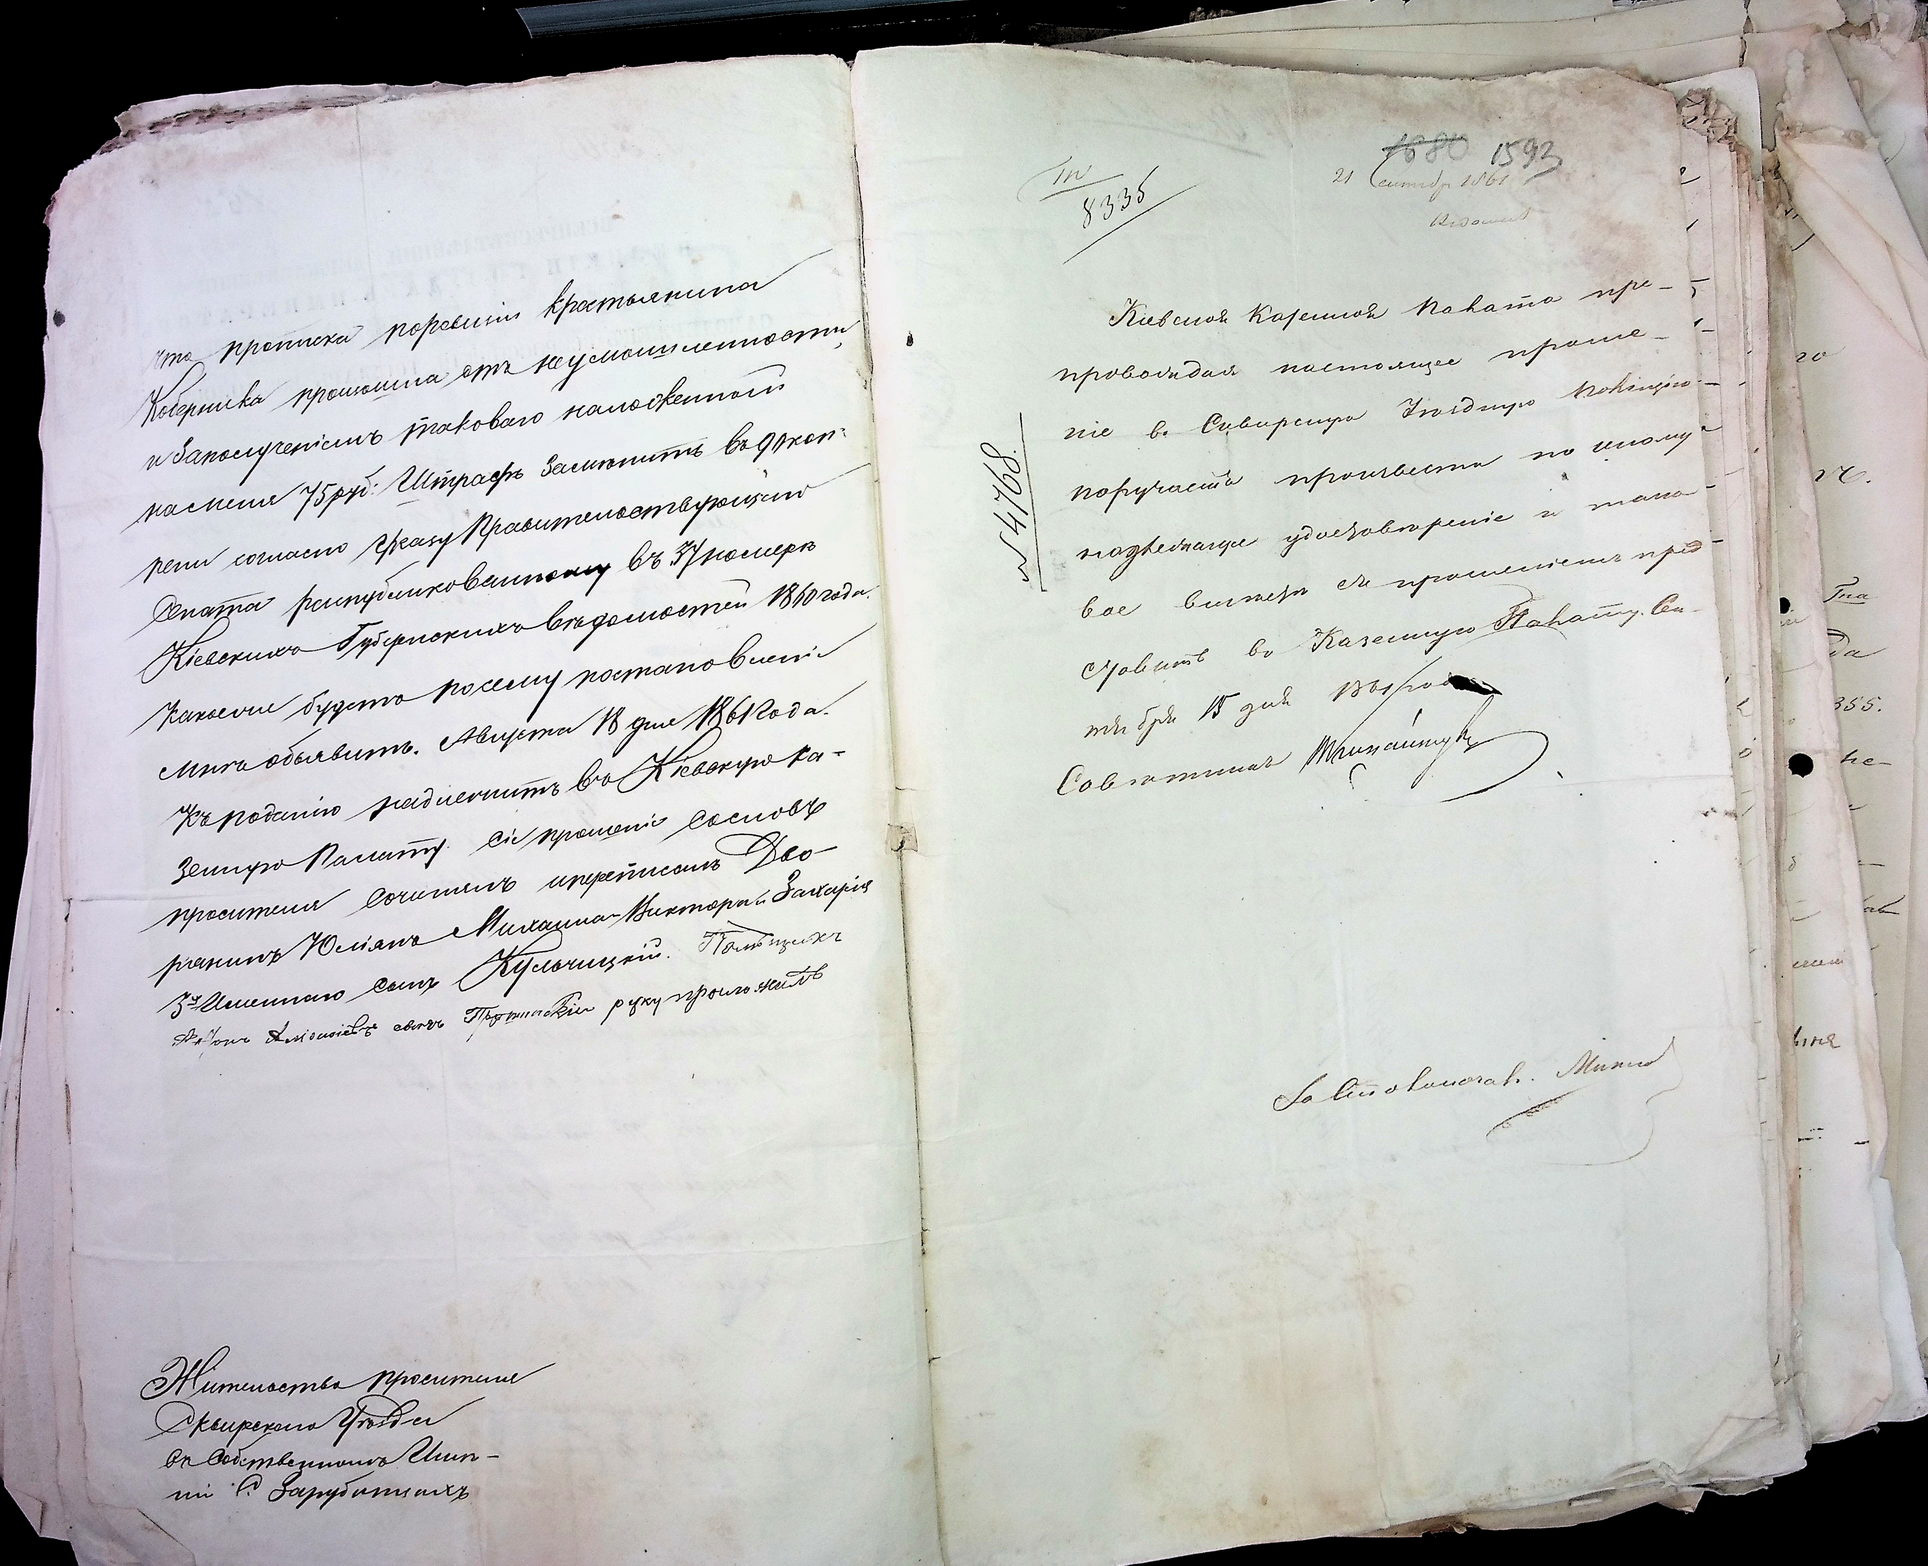 что прописка поревизіи крестьянина
Коберника произошла отъ неумышленности,
и Заполученіемъ таковаго наложенной
на меня 75 руб: Штрафъ Заменить въ 90 коп:
согласно Указу Правительствующаго
Сената распубликованному въ 37 номеръ
Кіевскихъ Губернскихъ ведомостей 1860 года.
Какое будетъ посему постановленіе
мнѣ объявить. Августа 18 дня 1861 Года.
Къ поданію надлежитъ въ Кіевскую ка-
зенную Палату. Сіе прошеніе Сословъ
просителя Сочинялъ ипереписалъ Дво-
рянинъ Юліянъ Михаила-Викторъ Захарія
3х Именнаго Сынъ Кульчицкій. Помѣщикъ
Антонъ сынъ руку приложилъ
Жительство просителя
Сквирскаго Уѣзда
въ собственномъ Имѣ-
ніи С. Зарубинцахъ
8335
1880 1593
21 Сентябр 1861
№ 4768.
Кіевской Казенной Палата пре-
провождая настоящее проше-
ніе въ Сквирскую Уѣздную Полицію
поручаетъ произвести по оному
надлежащее удостовѣреніе и тако-
вое вмѣстѣ съ прошеніемъ пред-
ставить въ Казенную Палату. Сен-
тября 15 дня
Совѣтникъ
За Столоначал.